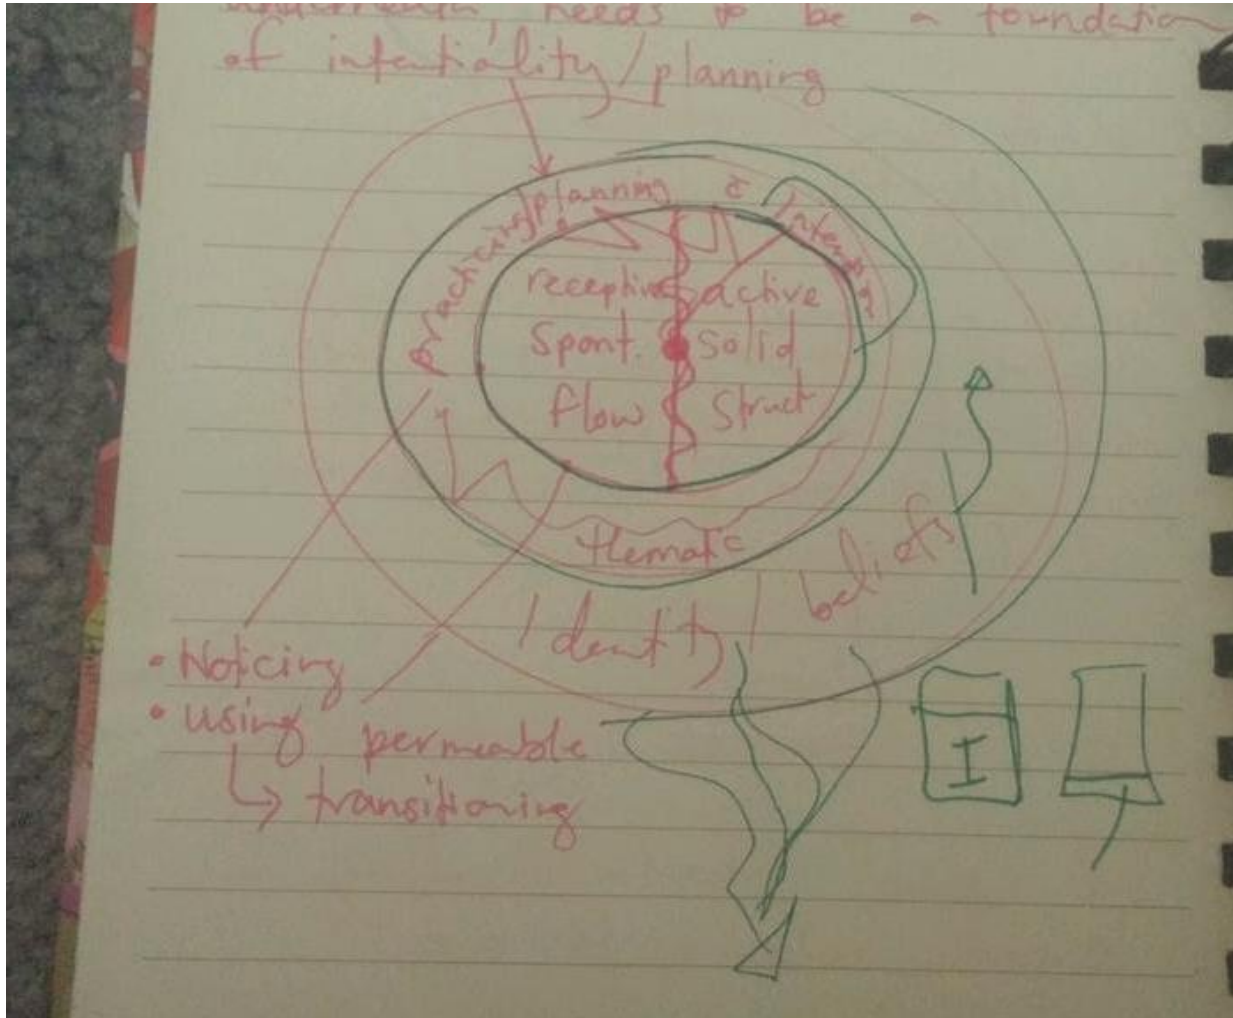 underneath, needs to be a foundation
of intentiality/planning
practicing/planning
c Intention
receptive active
Spont. Solid
flow Struct
thematic
Identity/beliefs
• Noticing
• using permeable
↳ transitioning
I